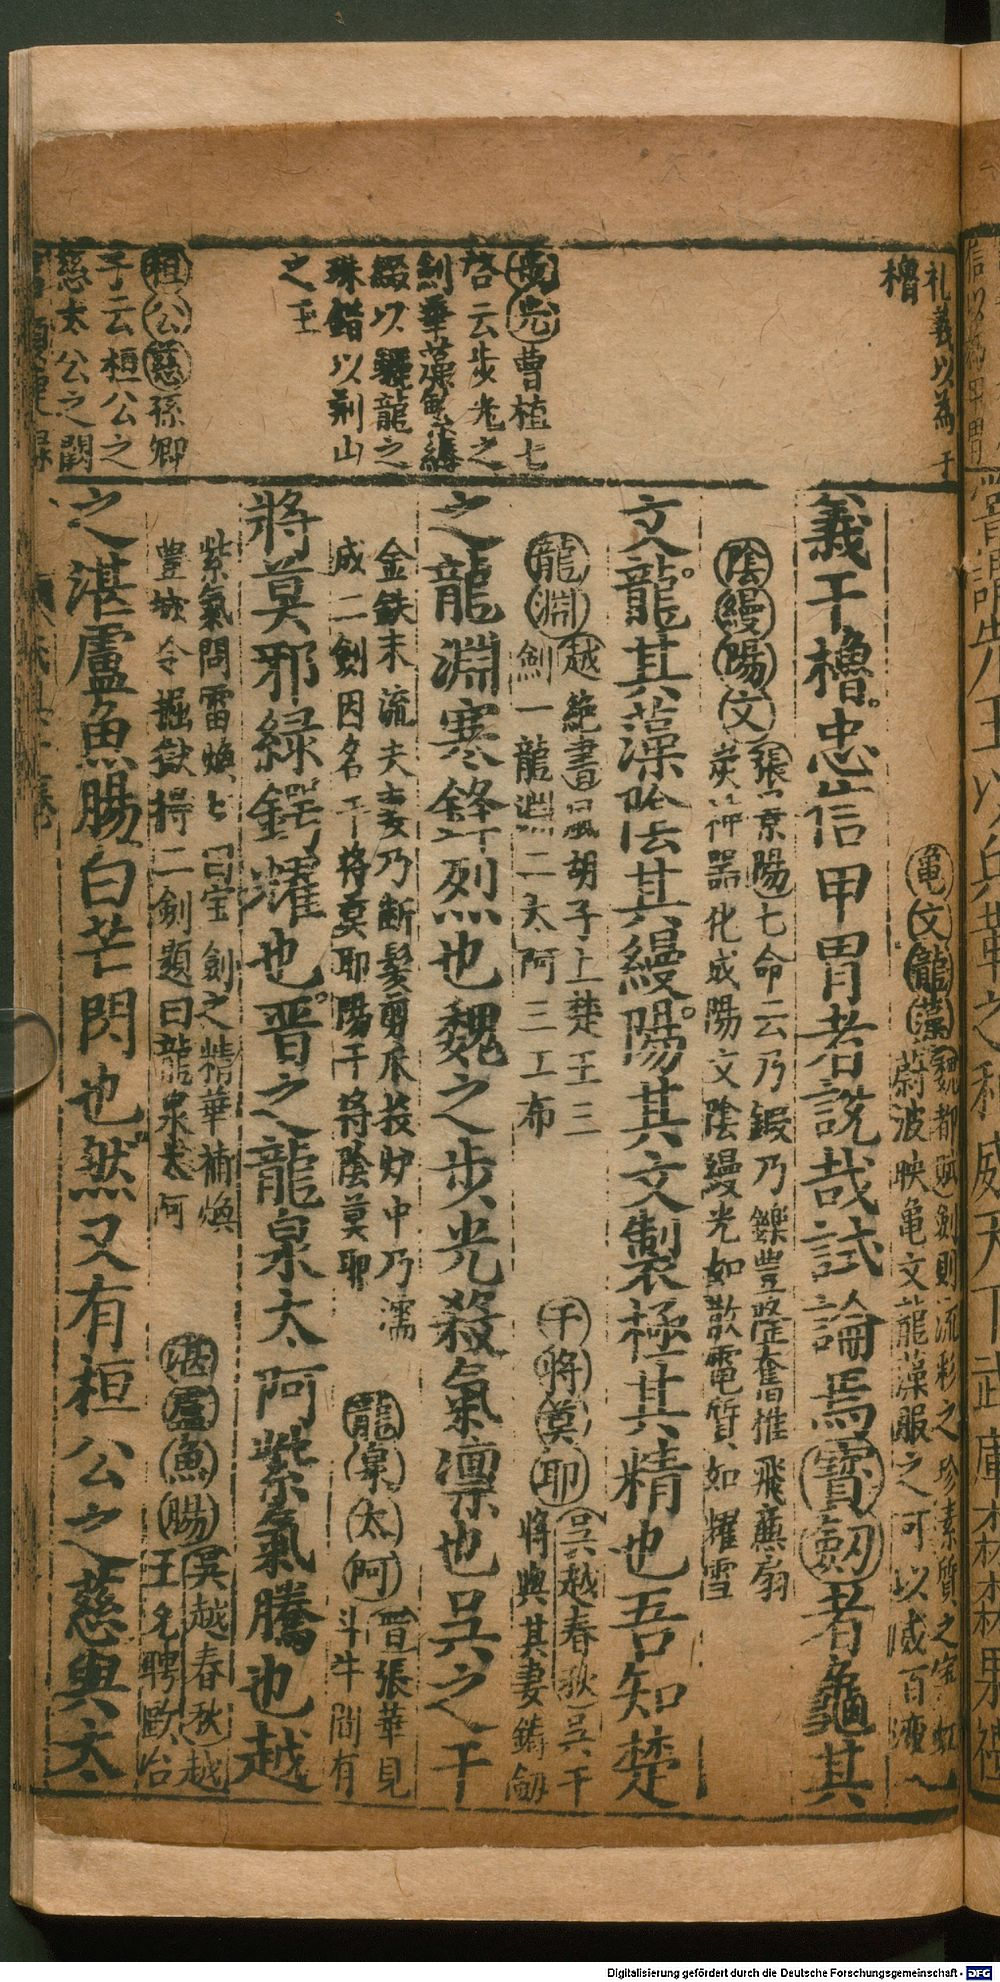 礼義以為干
櫓
步光曹植七
啓云步光之
劍華藻繁縟
綴以驪龍之
珠錯以荆山
之玉
桓公葱孫卿
子云桓公之
葱太公之闕
龜文龍藻魏都賦劍則流彩之珍素質之宝虹
蔚波映龜文龍藻服之可以威百
義干櫓忠信甲冑者說哉試論焉寶劒者龜其
陰縵陽文張景陽七命云乃鍜乃鑠豊隆奮推飛廉扇
炭神器化成陽文陰縵光如散電質如耀雪
文龍其藻陰其縵陽其文製極其精也吾知楚
龍淵越絶書風胡子上楚王三
劍一龍淵二太阿三工布
干將莫耶吳越春秋吳干
將與其妻鑄劒
之龍淵寒鋒烈也魏之步光殺氣凛也吳之干
金鉄未流夫妻乃断髮剪爪投炉中乃濡
成二劍因名干將莫耶陽干將陰莫耶
龍泉太阿晋張華見
斗牛間有
將莫邪綠鍔耀也晋之龍泉太阿紫氣騰也越
紫氣問雷煥煥曰宝劍之精華補煥
豊城令掘獄得二劍題曰龍泉太阿
湛盧魚膓吳越春秋越
王允聘歐冶
之湛盧魚腸白芒閃也然又有桓公之葱與太
Digitalisierung gefördert durch die Deutsche Forschungsgemeinschaft - DFG